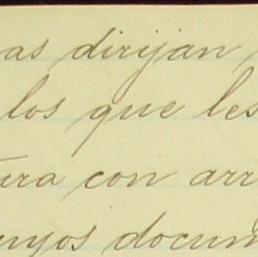 as dirijan
los que les
ura con arr
uyos docum